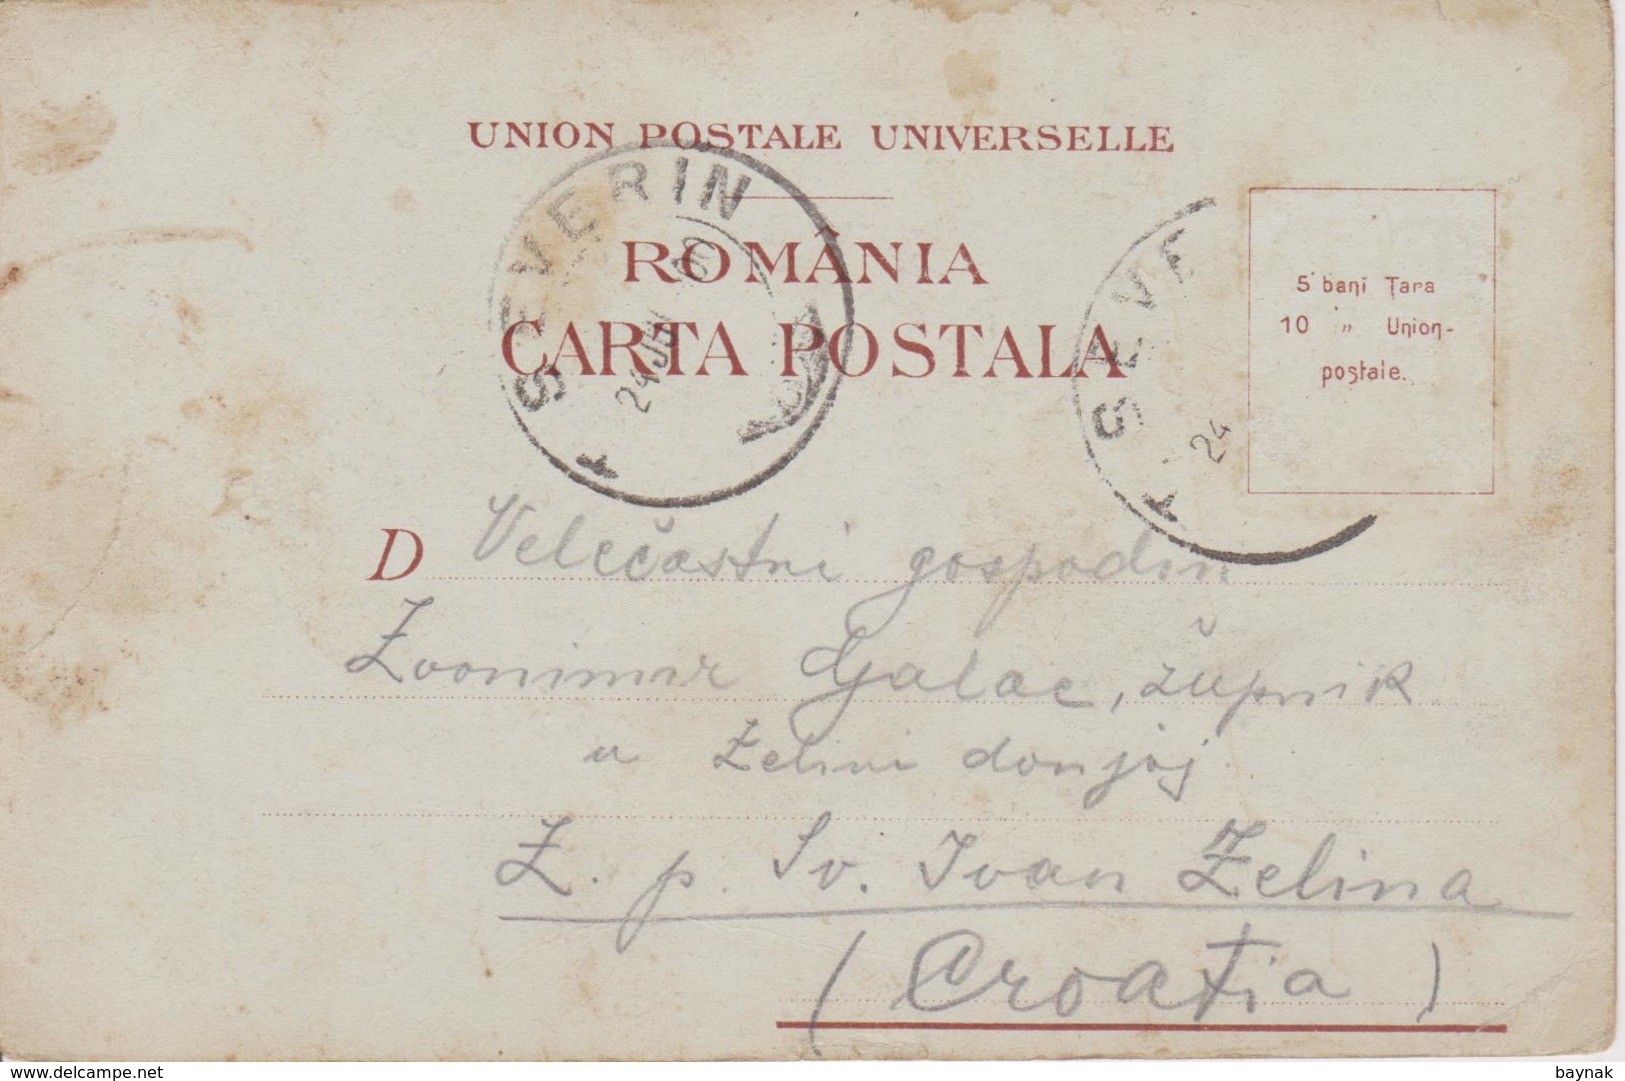 UNION POSTALE UNIVERSELLE
ROMÂNIA
CARTA POSTALA
T. SEVERIN
24 JUN
T. SEVE
24
5 bani Ţara
10 " Union-
postale.
D Velečastni gospodin
Zvonimir Galac, župnik
u Zelini donjoj
Z. p. Sv. Ivan Zelina
(Croatia)
baynak
www.delcampe.net